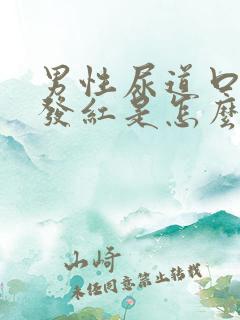 男性尿道口
發紅是怎麼
山崎
未经同意禁止转载